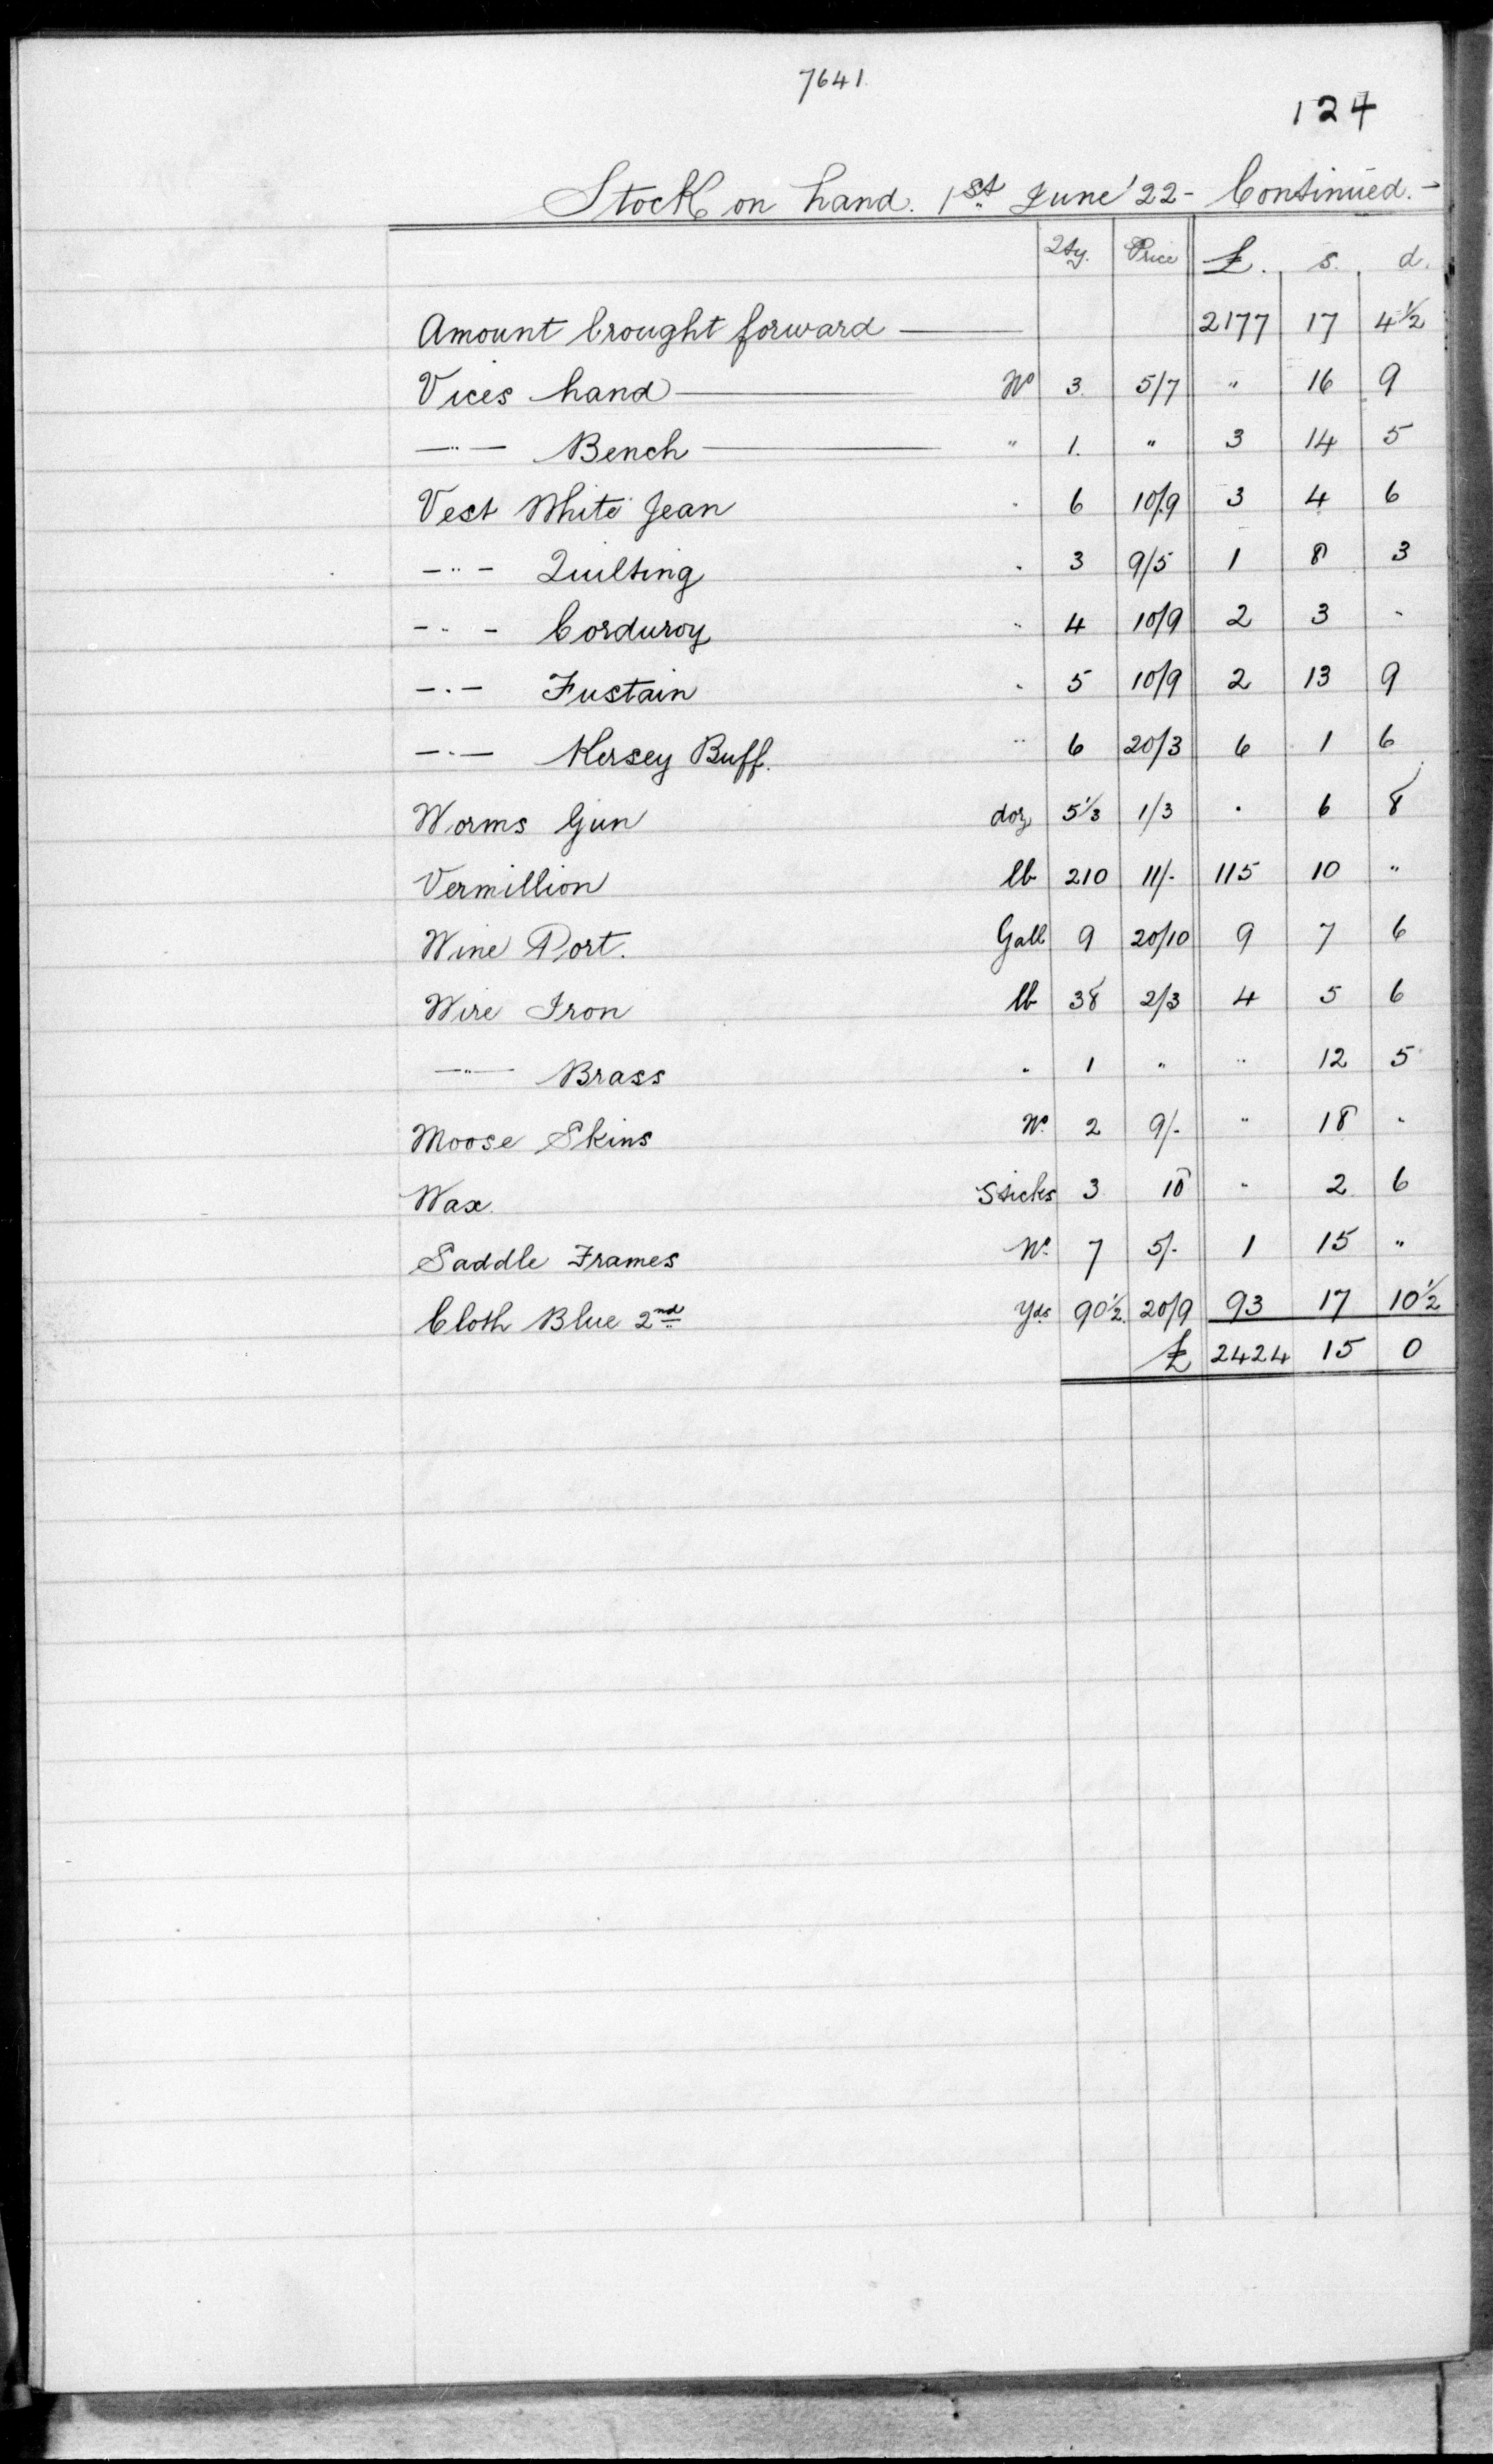 7641.
124
Stock on hand. 1st June '22 - Continued. -
Qty. Price £. s. d.
Amount brought forward — 2177 17 4½
Vices hand — No 3. 5/7 " 16 9
—"— Bench — " 1. " 3 14 5
Vest White Jean " 6 10/9 3 4 6
-"- Quilting " 3 9/5 1 8 3
-"- Corduroy " 4 10/9 2 3 "
-"- Fustain " 5 10/9 2 13 9
—"— Kersey Buff. " 6 20/3 6 1 6
Worms Gun doz 5⅓ 1/3 " 6 8
Vermillion lb 210 11/- 115 10 "
Wine Port. Gall 9 20/10 9 7 6
Wire Iron lb 38 2/3 4 5 6
—"— Brass " 1 " " 12 5
Moose Skins No. 2 9/- " 18 "
Wax. Sticks 3 10 " 2 6
Saddle Frames No. 7 5/- 1 15 "
Cloth Blue 2nd Yds 90½ 20/9 93 17 10½
£ 2424 15 0